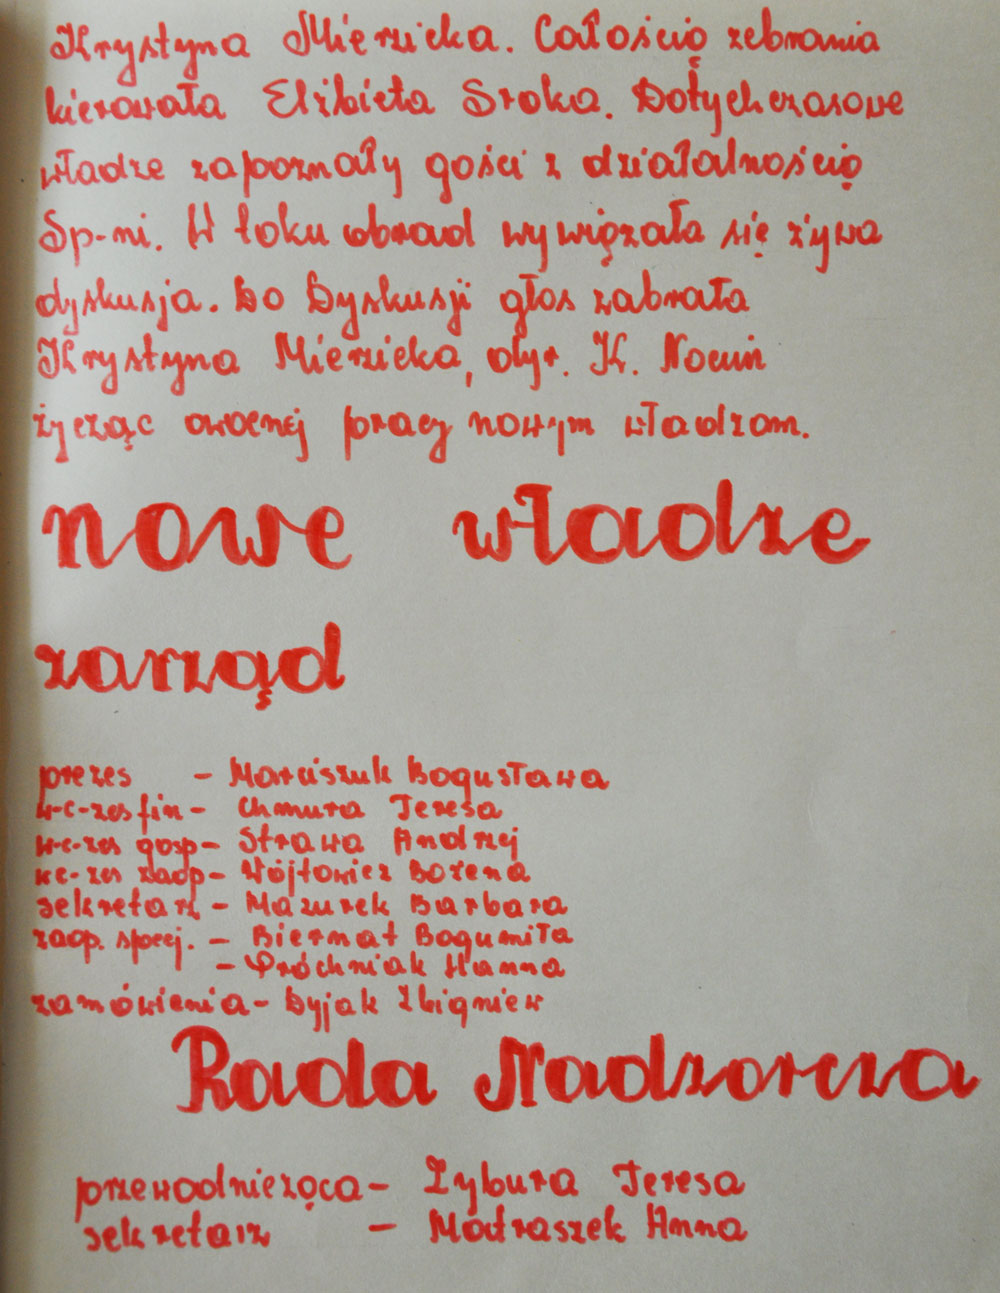 Krystyna Mierzicka. Całością zebrania
kierowała Elżbieta Sroka. Dotychczasowe
władze zapoznały gości z działalnością
Sp-ni. W toku obrad wywiązała się żywa
dyskusja. Do Dyskusji głos zabrała
Krystyna Mierzicka, dyr. K. Nowin
życząc owocnej pracy nowym władzom.
nowe władze
zarząd
prezes - Marciszuk Bogusława
w-c-zes fin - Chmura Teresa
w-c-zes gosp - Strawa Andrzej
wc-zes zaop - Wójtowicz Bożena
sekretarz - Mazurek Barbara
zaop. specj. - Biernat Bogumiła
- Próchniak Hanna
zamówienia - Dyjak Zbigniew
Rada Nadzorcza
przewodnicząca - Żybura Teresa
sekretarz - Matraszek Anna